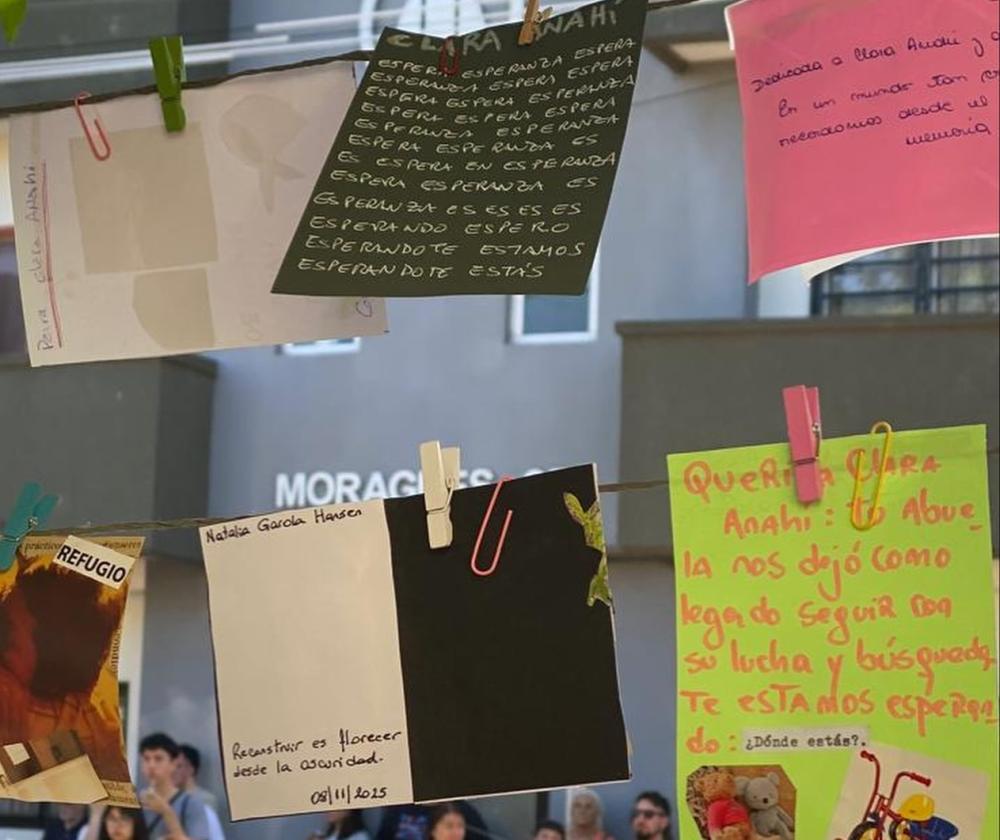 Peira Clara Anahí
CLARA ANAHÍ
ESPERA ESPERANZA ESPERA
ESPERANZA ESPERA ESPERA
ESPERA ESPERA ESPERANZA
ESPERA ESPERA ESPERA
ESPERANZA ESPERANZA
ESPERA ESPERANZA ES
ES ESPERA EN ESPERANZA
ESPERA ESPERANZA ES
ESPERANZA ES ES ES ES
ESPERANDO ESPERO
ESPERANDOTE ESTAMOS
ESPERANDOTE ESTÁS
Dedicada a Clara Anahí y
En un mundo tan
recordamos desde el
memoria
MORAGUES
REFUGIO
Natalia Garola Hansen
Reconstruir es florecer
desde la oscuridad.
08/11/2025
QUERIDA CLARA
Anahí: tu Abue_
la nos dejó como
legado seguir con
su lucha y búsqueda.
TE ESTAMOS esperan_
do: ¿Dónde estás?.